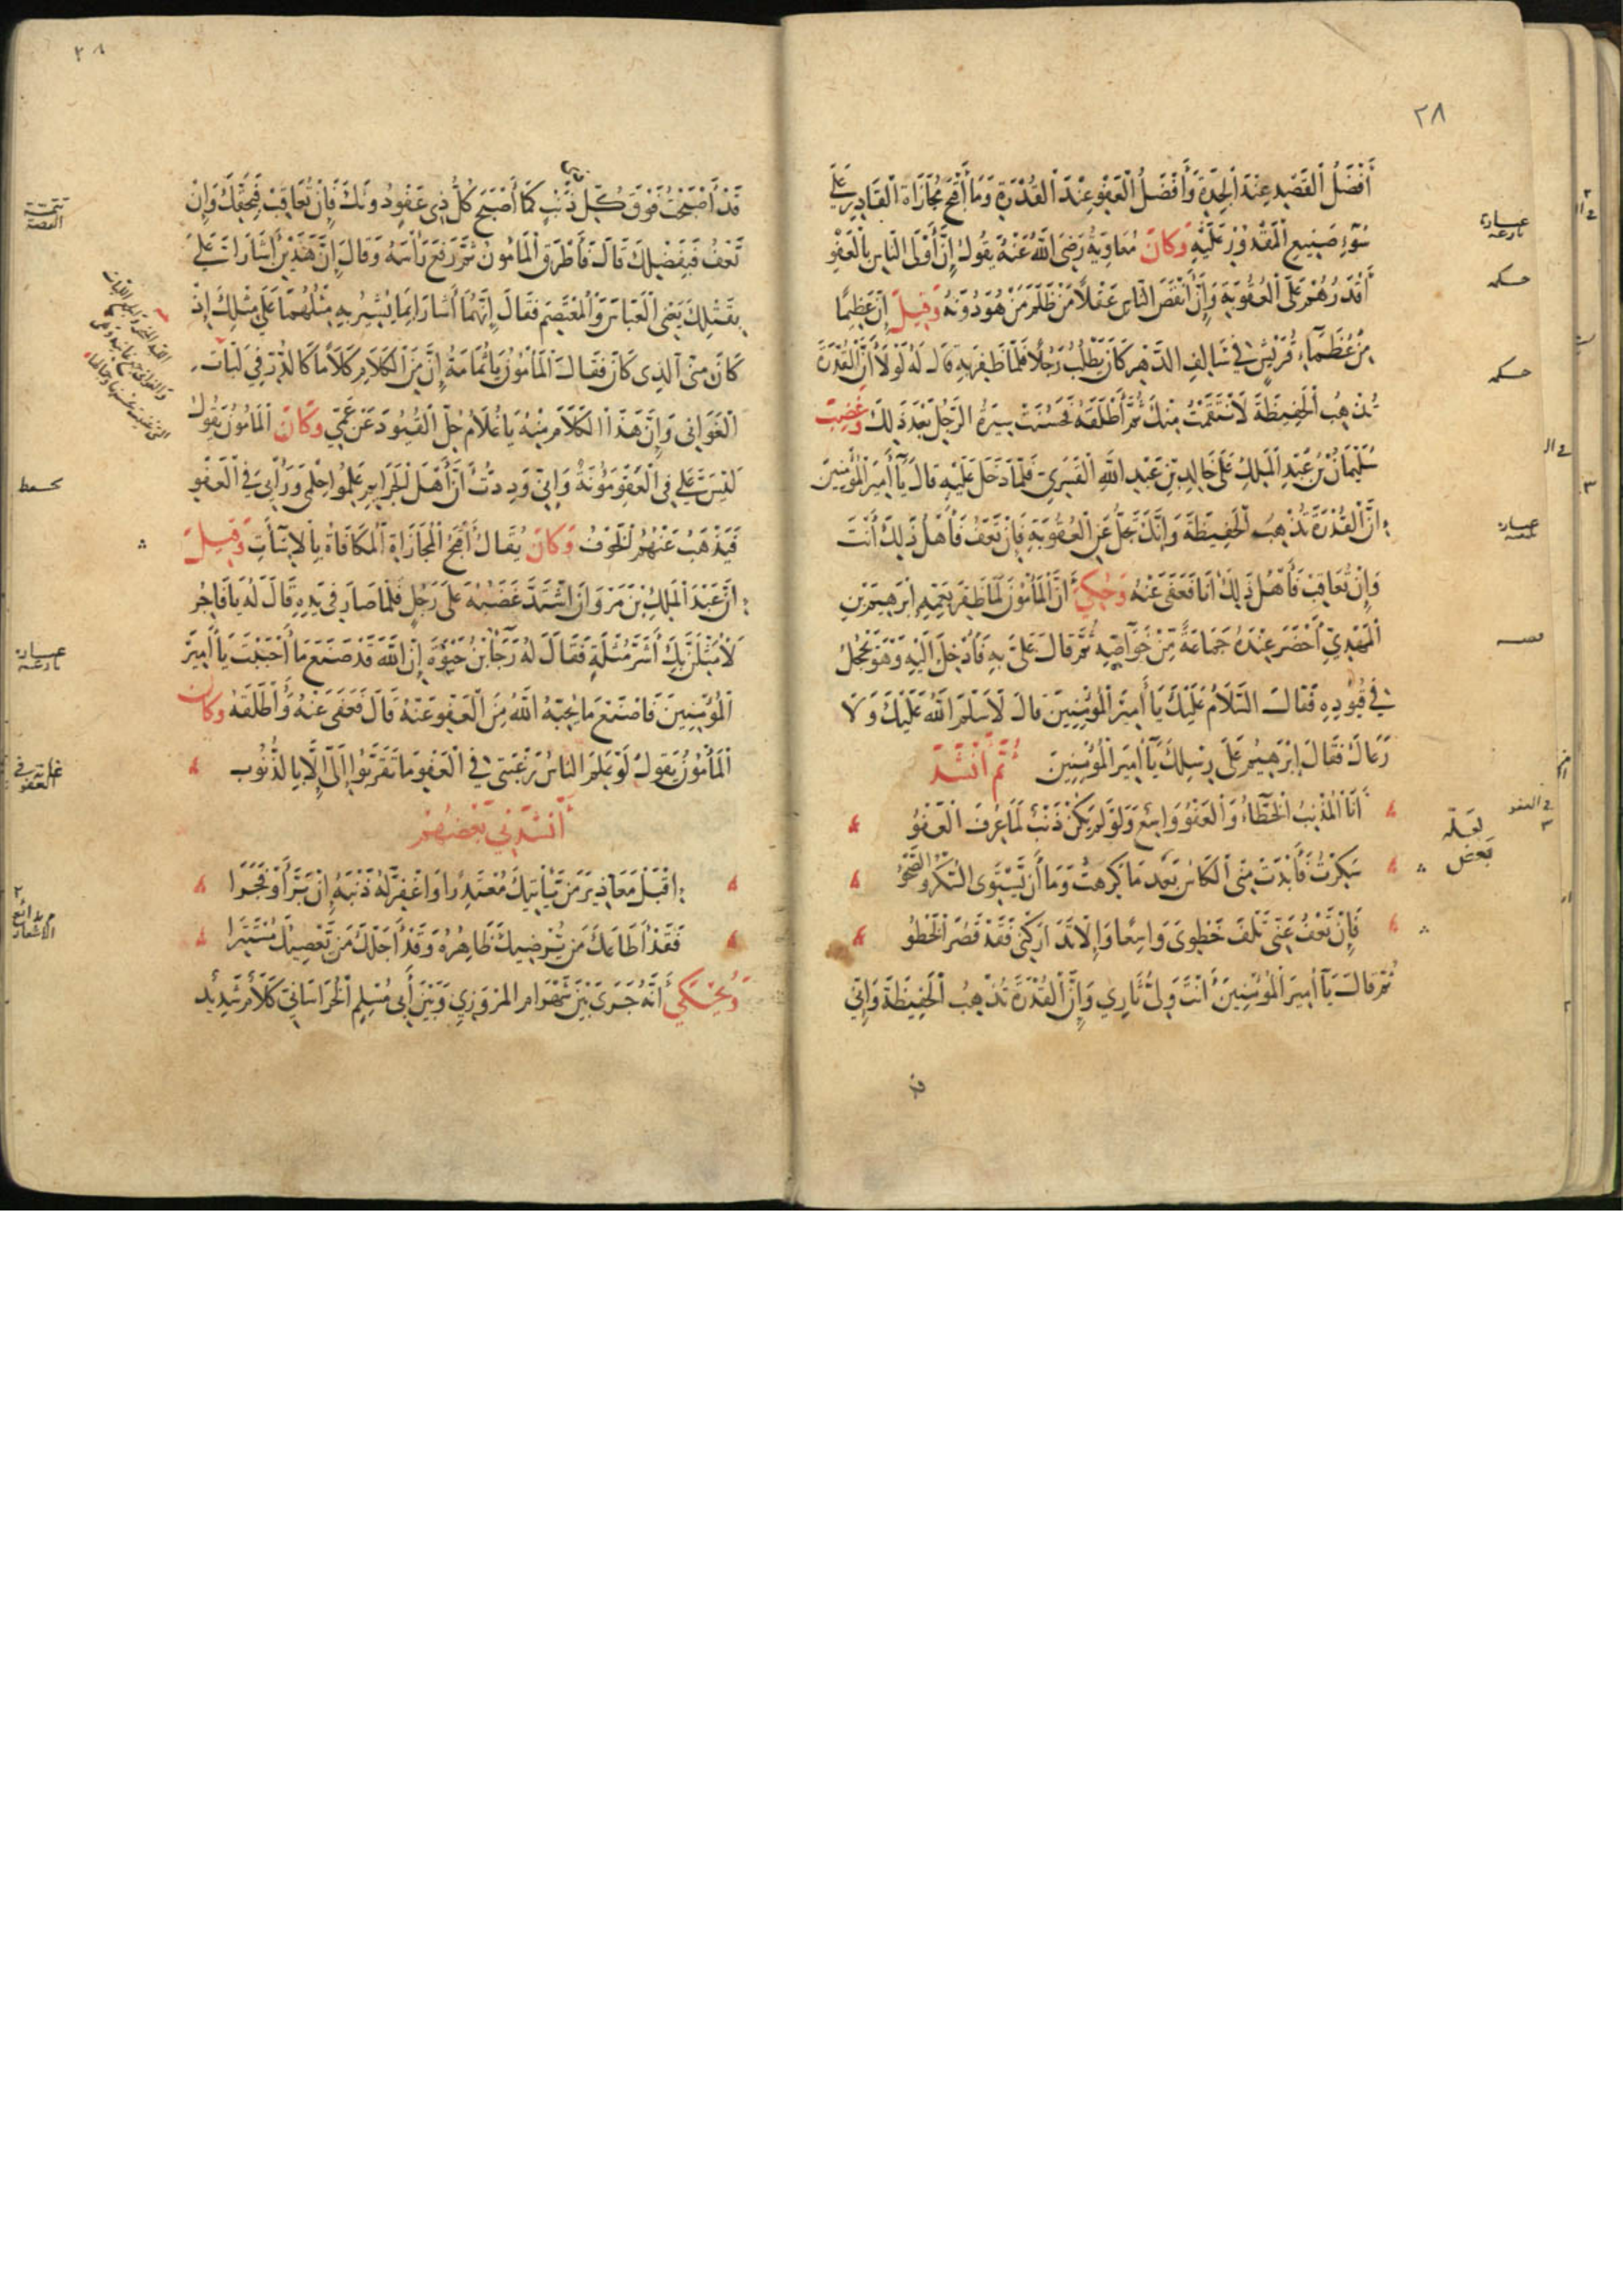 ٢٨
أَفْضَلُ الْقَصْدِ عِنْدَ الْجِدَةِ وَأَفْضَلُ الْعَفْوِ عِنْدَ الْقُدْرَةِ وَمَا أَقْبَحَ مُجَازَاةَ الْقَادِرِ عَلَى
سُوءِ صَنِيعِ الْمَقْدُوْرِ عَلَيْهِ وَكَانَ مُعَاوِيَةُ رَضِيَ اللهُ عَنْهُ يَقُولُ إِنَّ أَوْلَى النَّاسِ بِالْعَفْوِ
أَقْدَرُهُمْ عَلَى الْعُقُوبَةِ وَإِنَّ أَنْقَصَ النَّاسِ عَقْلًا مَنْ ظَلَمَ مَنْ هُوَ دُوْنَهُ وَقِيلَ إِنَّ عَظِيمًا
مِنْ عُظَمَاءِ قُرَيْشٍ فِي سَالِفِ الدَّهْرِ كَانَ يَطْلُبُ رَجُلًا فَلَمَّا ظَفِرَ بِهِ قَالَ لَهُ لَوْلَا أَنَّ الْقُدْرَةَ
تُذْهِبُ الْحَفِيظَةَ لَانْتَقَمْتُ مِنْكَ ثُمَّ أَطْلَقَهُ فَحَسُنَتْ سِيرَةُ الرَّجُلِ بَعْدَ ذَلِكَ وَغَضِبَ
سُلَيْمَانُ بْنُ عَبْدِ الْمَلِكِ عَلَى خَالِدِ بْنِ عَبْدِ اللهِ الْقَسْرِيِّ فَلَمَّا دَخَلَ عَلَيْهِ قَالَ يَا أَمِيرَ الْمُؤْمِنِينَ
إِنَّ الْقُدْرَةَ تُذْهِبُ الْحَفِيظَةَ وَإِنَّكَ تَجِلُّ عَنِ الْعُقُوبَةِ فَإِنْ تَعْفُ فَأَهْلُ ذَلِكَ أَنْتَ
وَإِنْ تُعَاقِبْ فَأَهْلُ ذَلِكَ أَنَا فَعَفَى عَنْهُ وَحُكِيَ أَنَّ الْمَأْمُونَ لَمَّا ظَفِرَ بِعَمِّهِ إِبْرَهِيمَ بْنِ
الْمَهْدِيِّ أَحْضَرَ عِنْدَهُ جَمَاعَةً مِنْ خَوَاصِّهِ ثُمَّ قَالَ عَلَيَّ بِهِ فَأُدْخِلَ إِلَيْهِ وَهُوَ يَحْجُلُ
فِي قُيُوْدِهِ فَقَالَ السَّلَامُ عَلَيْكَ يَا أَمِيرَ الْمُؤْمِنِينَ قَالَ لَا سَلَّمَ اللهُ عَلَيْكَ وَلَا
رَعَاكَ فَقَالَ إِبْرَهِيمُ عَلَى رِسْلِكَ يَا أَمِيرَ الْمُؤْمِنِينَ ثُمَّ أَنْشَدَ
أَنَا الْمُذْنِبُ الْخَطَّاءُ وَالْعَفْوُ وَاسِعٌ وَلَوْ لَمْ يَكُنْ ذَنْبٌ لَمَا عُرِفَ الْعَفْوُ
سَكِرْتُ فَأَبْدَتْ مِنِّي الْكَاسُ بَعْدَ مَا كَرِهْتُ وَمَا أَنْ يَسْتَوِي السُّكْرُ وَالصَّحْوُ
فَإِنْ تَعْفُ عَنِّي تَلْفَ خَطْوِي وَاسِعًا وَإِلَّا تَدَارَكْنِي فَقَدْ قَصُرَ الْخَطْوُ
ثُمَّ قَالَ يَا أَمِيرَ الْمُؤْمِنِينَ أَنْتَ وَلِيُّ ثَارِي وَإِنَّ الْقُدْرَةَ تُذْهِبُ الْحَفِيظَةَ وَإِنِّي
حكمه
حكمه
لعله
بعض
قد
٢٨
قَدْ أَصْبَحْتُ فَوْقَ كُلِّ ذَنْبٍ كَمَا أَصْبَحَ كُلُّ ذِي عَفْوٍ دُوْنَكَ فَإِنْ تُعَاقِبْ فَبِحَقِّكَ وَإِنْ
تَعْفُ فَبِفَضْلِكَ قَالَ فَأَطْرَقَ الْمَأْمُونُ ثُمَّ رَفَعَ رَأْسَهُ وَقَالَ إِنَّ هَذَيْنِ أَشَارَا عَلَيَّ
بِقَتْلِكَ يَعْنِي الْعَبَّاسَ وَالْمُعْتَصِمَ فَقَالَ إِنَّهُمَا أَشَارَا بِمَا يُشِيرُ بِهِ مِثْلُهُمَا عَلَى مِثْلِكَ إِذْ
كَانَ مِنِّي الَّذِي كَانَ فَقَالَ الْمَأْمُوْنُ يَا ثُمَامَةُ إِنَّ مِنَ الْكَلَامِ كَلَامًا كَالدُّرِّ فِي لَبَّاتِ
الْغَوَانِي وَإِنَّ هَذَا الْكَلَامَ مِنْهُ يَا غُلَامُ حُلَّ الْقُيُوْدَ عَنْ عَمِّي وَكَانَ الْمَأْمُونُ يَقُولُ
لَيْسَ عَلَيَّ فِي الْعَفْوِ مَؤُنَةٌ وَإِنِّي وَدِدْتُ أَنَّ أَهْلَ الْجَرَايِمِ عَلِمُوا حِلْمِي وَرَأْيِي فِي الْعَفْوِ
فَيَذْهَبُ عَنْهُمُ الْخَوْفُ وَكَانَ يُقَالُ أَقْبَحُ الْمُجَازَاةِ الْمُكَافَاةُ بِالْإِسَآتِ وَقِيلَ
إِنَّ عَبْدَ الْمَلِكِ بْنَ مَرْوَانَ اشْتَدَّ غَضَبُهُ عَلَى رَجُلٍ فَلَمَّا صَارَ فِي يَدِهِ قَالَ لَهُ يَا فَاجِرُ
لَأُمَثِّلَنَّ بِكَ أَشَرَّ مُثْلَةٍ فَقَالَ لَهُ رَجَآءُ بْنُ حَيْوَةَ إِنَّ اللهَ قَدْ صَنَعَ مَا أَحْبَبْتَ يَا أَمِيرَ
الْمُؤْمِنِينَ فَاصْنَعْ مَا يُحِبُّهُ اللهُ مِنَ الْعَفْوِ عَنْهُ قَالَ فَعَفَى عَنْهُ وَأَطْلَقَهُ وَكَانَ
الْمَأْمُونُ يَقُولُ لَوْ عَلِمَ النَّاسُ رَغْبَتِي فِي الْعَفْوِ مَا تَقَرَّبُوا إِلَيَّ إِلَّا بِالذُّنُوبِ
أَنْشَدَنِي بَعْضُهُمْ
اقْبَلْ مَعَاذِيرَ مَنْ يَأْتِيكَ مُعْتَذِرًا وَاغْفِرْ لَهُ ذَنْبَهُ إِنْ بَرَّ أَوْ فَجَرَا
فَقَدْ أَطَاعَكَ مَنْ يُرْضِيكَ ظَاهِرُهُ وَقَدْ أَجَلَّكَ مَنْ يَعْصِيكَ مُسْتَتِرَا
وَيُحْكَى أَنَّهُ جَرَى بَيْنَ شَهْرَامِ الْمَرْوَزِيِّ وَبَيْنَ أَبِي مُسْلِمٍ الْخُرَاسَانِيِّ كَلَامٌ شَدِيدٌ
تتمت
القصة
في
العفو
الاشعار